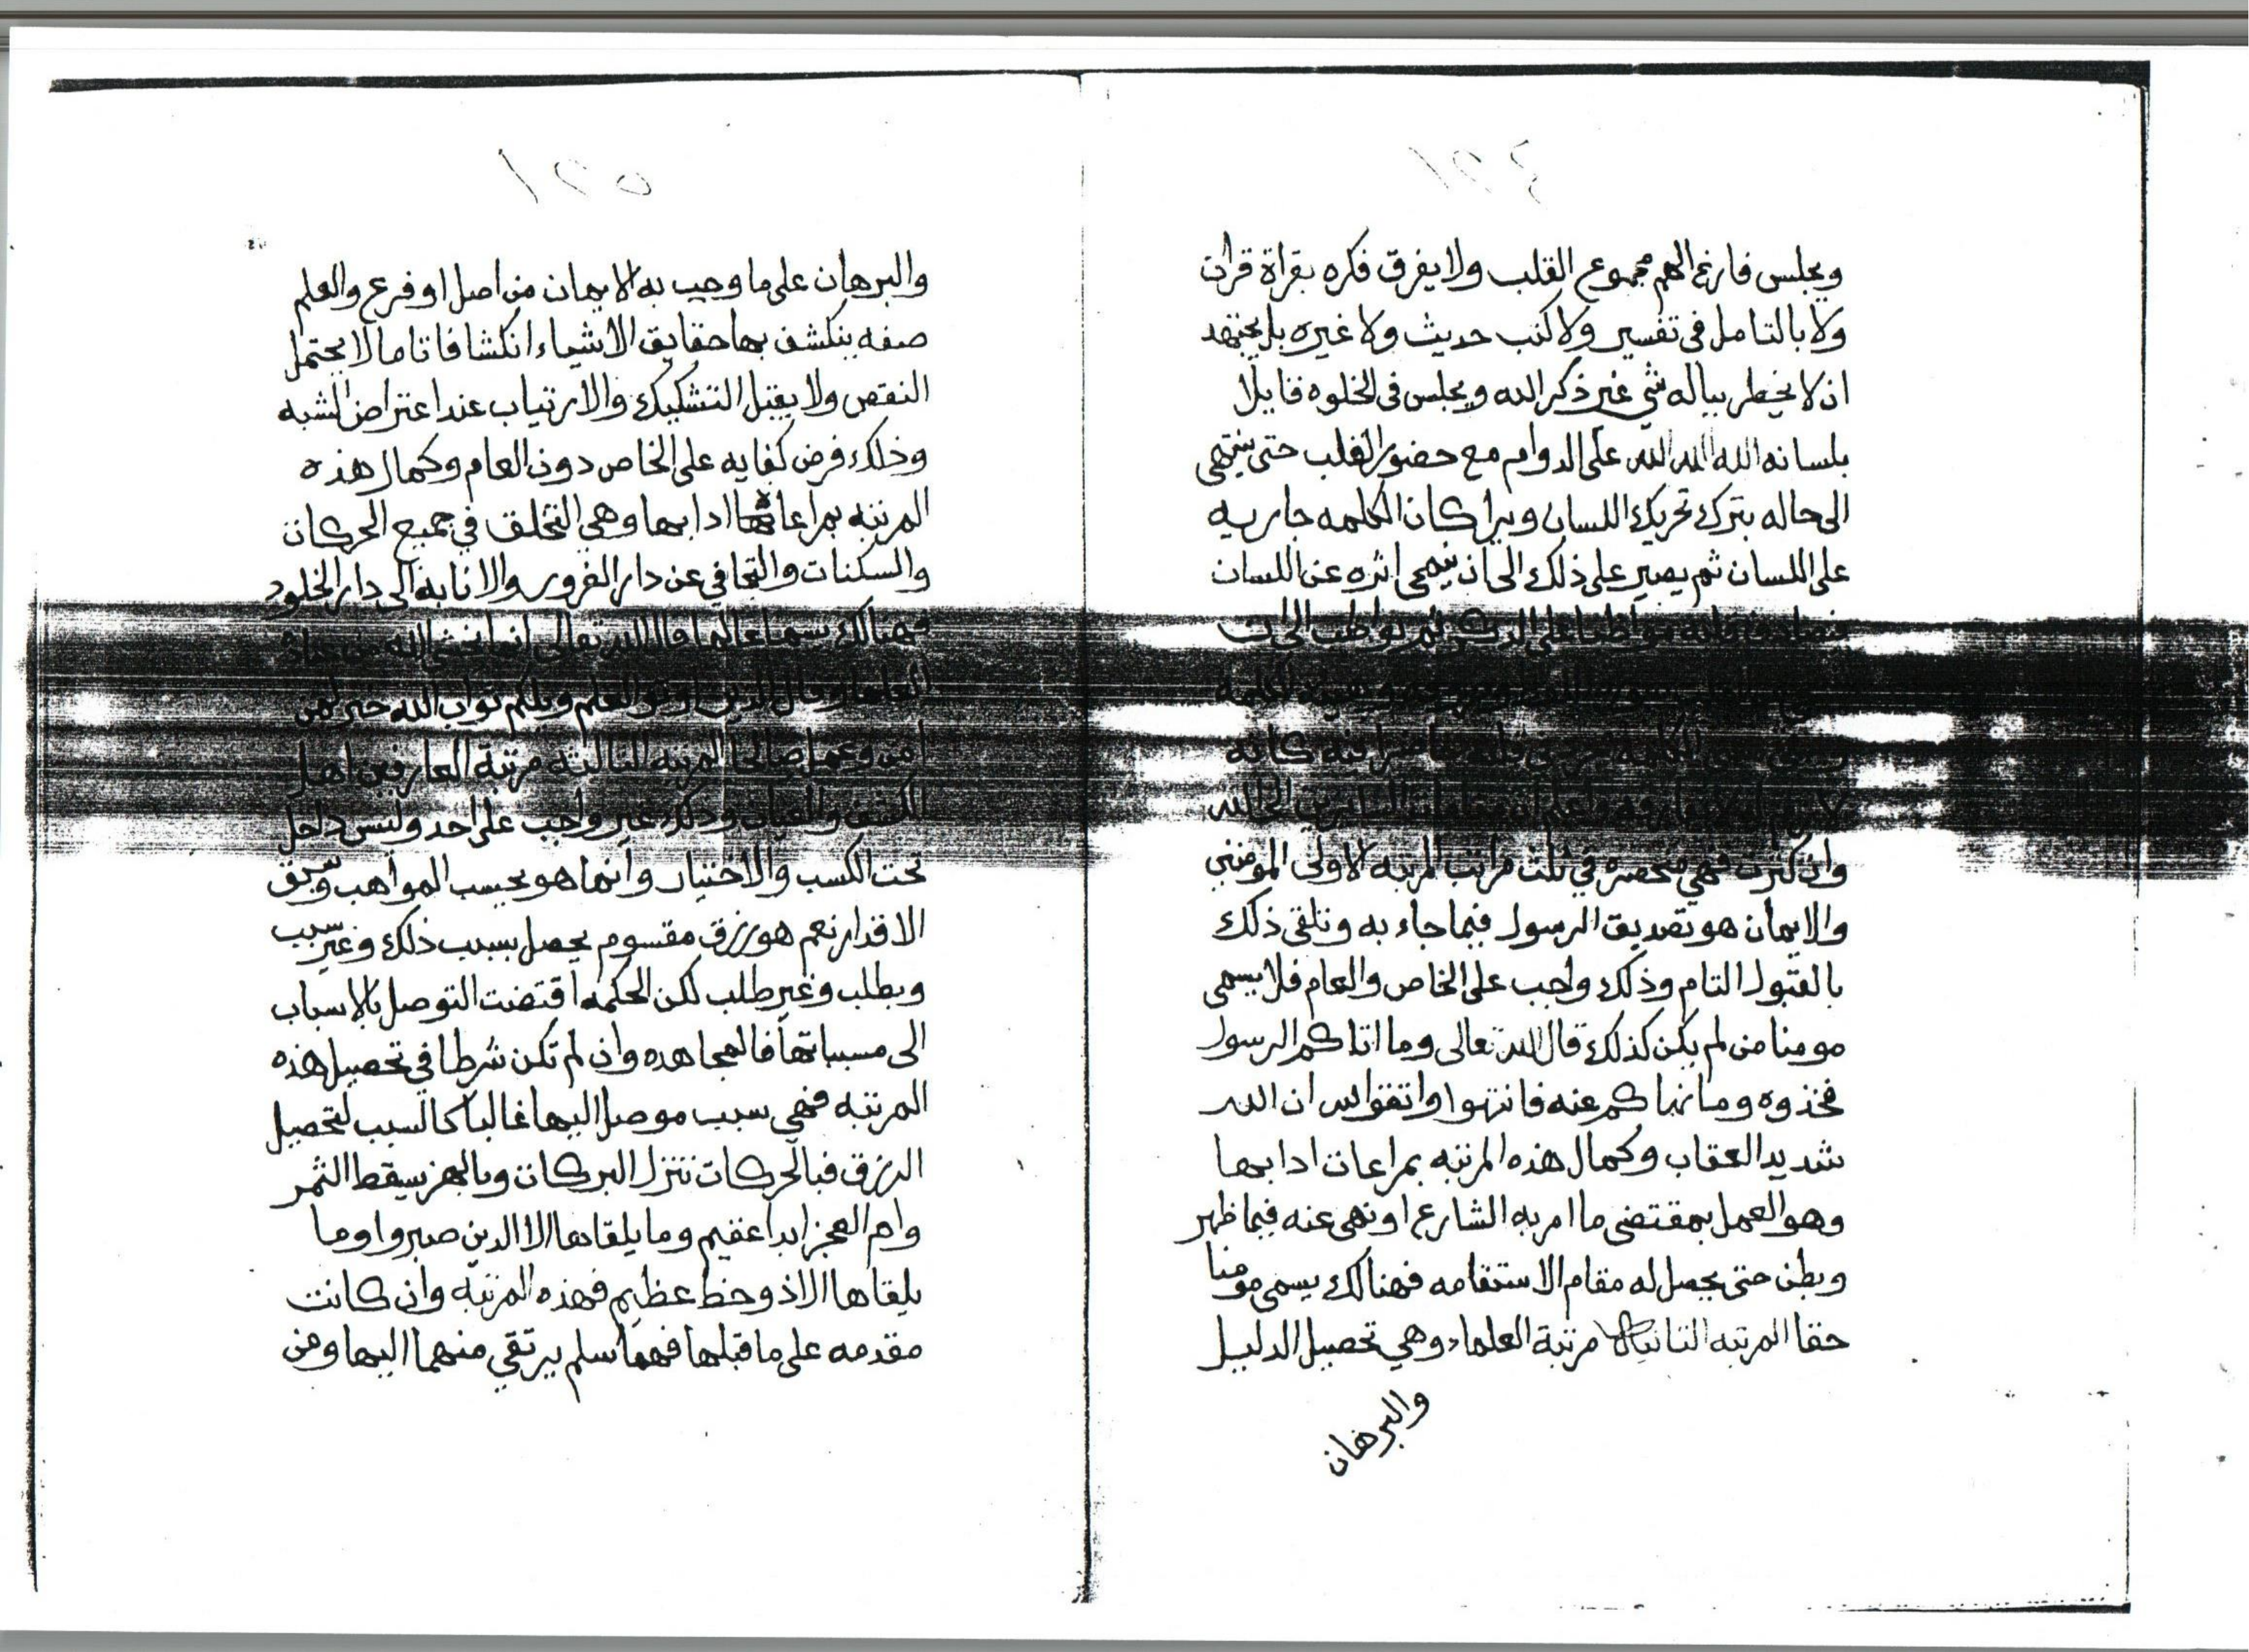 ١٥٤
ويجلس فارغ الهم مجموع القلب ولا يفرق فكره بقراة قران
ولا بالتامل في تفسير ولا كتب حديث ولا غيره بل يجتهد
ان لا يخطر بباله شي غير ذكر الله ويجلس في الخلوه قايلا
بلسانه الله الله الله على الدوام مع حضور القلب حتى ينتهى
الى حاله يترك تحريك اللسان ويرا كان الكلمه جاريه
على اللسان ثم يصير على ذلك الى ان ينمحى اثره عن اللسان
فيصادف قلبه مواظبا على الذكر ثم يواظب الى ان
الكلمه
الكلمه في قلبه حاضرا فيه كانه
لازم الى الله
وان كثرت فهي منحصره في ثلث مراتب المرتبه الاولى المومنين
والايمان هو تصديق الرسول فيما جاء به وتلقى ذلك
بالقبول التام وذلك واجب على الخاص والعام فلا يسمى
مومنا من لم يكن كذلك قال الله تعالى وما اتاكم الرسول
فخذوه وما نهاكم عنه فانتهوا واتقوا الله ان الله
شديد العقاب وكمال هذه المرتبه بمراعات ادابها
وهو العمل بمقتضى ما امر به الشارع او نهى عنه فيما ظهر
وبطن حتى يحصل له مقام الاستقامه فهنالك يسمى مومنا
حقا المرتبه الثانيه مرتبة العلماء وهي تحصيل الدليل
والبرهان
١٥٥
والبرهان على ما وجب به الايمان من اصل او فرع والعلم
صفه ينكشف بها حقايق الاشياء انكشافا تاما لا يحتمل
النقص ولا يقبل التشكيك والارتياب عند اعتراض الشبه
وذلك فرض كفايه على الخاص دون العام وكمال هذه
المرتبه بمراعاة ادابها وهي التخلق في جميع الحركات
والسكنات والتجافي عن دار الغرور والانابة الى دار الخلود
فهنالك يسمى عالما قال الله تعالى انما يخشى الله من عباده
العلما وقال الذين اوتوا العلم ويلكم ثواب الله خير لمن
امن وعمل صالحا المرتبه الثالثه مرتبة العارفين اهل
الكشف والعيان وذلك غير واجب على احد وليس داخل
تحت الكسب والاختيار وانما هو بحسب المواهب وسبق
الاقدار نعم هو رزق مقسوم يحصل بسبب ذلك وغير سبب
وبطلب وغير طلب لكن الحكمه اقتضت التوصل بالاسباب
الى مسبباتها فالمجاهده وان لم تكن شرطا في تحصيل هذه
المرتبه فهي سبب موصل اليها غالبا كالسبب لتحصيل
الرزق فبالحركات تتنزل البركات وبالهز يسقط الثمر
وام العجز ابدا عقيم وما يلقاها الا الذين صبروا وما
يلقاها الا ذو حظ عظيم فهذه المرتبه وان كانت
مقدمه على ما قبلها فهما سلم يرتقي منهما اليها ومن